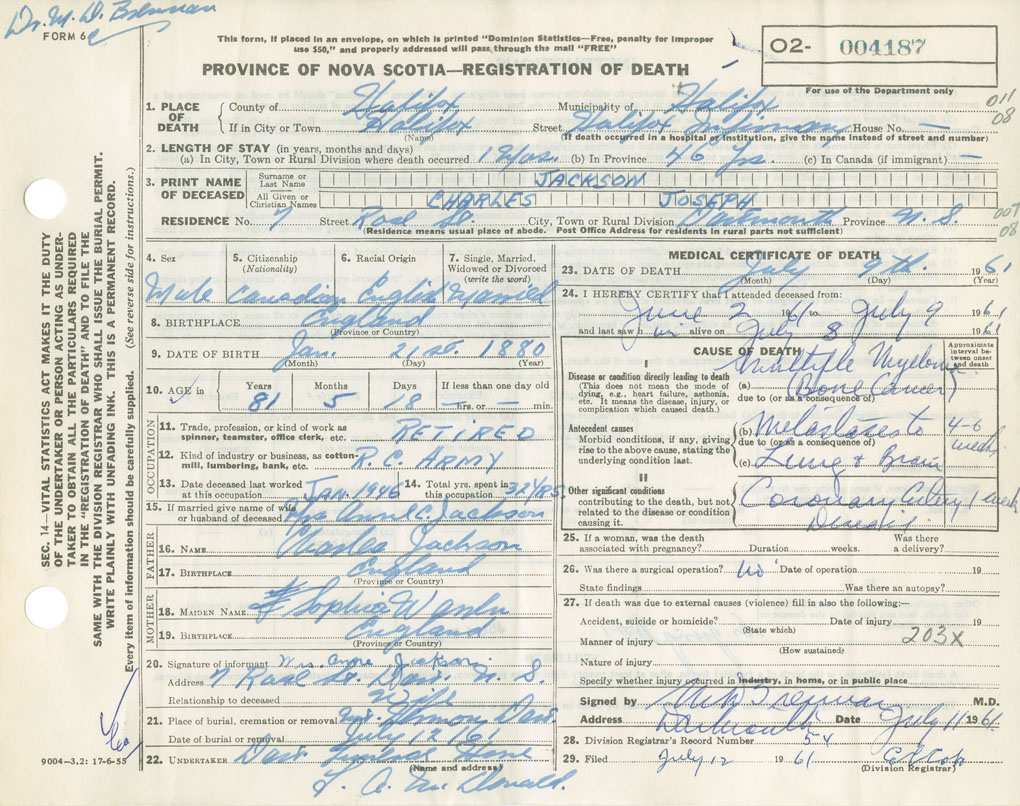 Dr. M. D. Brennan
FORM 6
This form, if placed in an envelope, on which is printed "Dominion Statistics—Free, penalty for improper
use $50," and properly addressed will pass through the mail "FREE"
O2- 004187
For use of the Department only
PROVINCE OF NOVA SCOTIA—REGISTRATION OF DEATH
011
08
1. PLACE OF DEATH County of Halifax Municipality of Halifax
If in City or Town Halifax Street Halifax Infirmary House No. —
(Name) (If death occurred in a hospital or institution, give the name instead of street and number)
2. LENGTH OF STAY (in years, months and days)
(a) In City, Town or Rural Division where death occurred (b) In Province 46 Yrs. (c) In Canada (if immigrant) —
3. PRINT NAME OF DECEASED Surname or Last Name JACKSON
All Given or Christian Names CHARLES JOSEPH
RESIDENCE No. 7 Street Rose St. City, Town or Rural Division Dartmouth Province N. S.
(Residence means usual place of abode. Post Office Address for residents in rural parts not sufficient)
007
08
4. Sex 5. Citizenship (Nationality) 6. Racial Origin 7. Single, Married, Widowed or Divorced (write the word)
Male Canadian English Married
8. BIRTHPLACE England
(Province or Country)
9. DATE OF BIRTH Jan. 21st. 1880
(Month) (Day) (Year)
10. AGE in Years Months Days If less than one day old
81 5 18 — hrs. or — min.
OCCUPATION
11. Trade, profession, or kind of work as spinner, teamster, office clerk, etc. RETIRED
12. Kind of industry or business, as cotton-mill, lumbering, bank, etc. R.C. ARMY
13. Date deceased last worked at this occupation JAN. 1946 14. Total yrs. spent in this occupation 32 YRS.
15. If married give name of wife or husband of deceased Mrs C. Jackson
FATHER
16. NAME Charles Jackson
17. BIRTHPLACE England
(Province or Country)
MOTHER
18. MAIDEN NAME Sophia
19. BIRTHPLACE England
(Province or Country)
20. Signature of informant Mrs. Jackson
Address 7 Rose St. Dart. N. S.
Relationship to deceased Wife
21. Place of burial, cremation or removal Mt. Hermon Dart.
Date of burial or removal July 12/61
22. UNDERTAKER Dart. Funeral Home
(Name and address)
L. A. McDonald.
9004-3.2: 17-6-55
SEC. 14—VITAL STATISTICS ACT MAKES IT THE DUTY
OF THE UNDERTAKER OR PERSON ACTING AS UNDER-
TAKER TO OBTAIN ALL THE PARTICULARS REQUIRED
IN THE "REGISTRATION OF DEATH" AND TO FILE THE
SAME WITH THE DIVISION REGISTRAR WHO SHALL ISSUE THE BURIAL PERMIT.
WRITE PLAINLY WITH UNFADING INK. THIS IS A PERMANENT RECORD.
Every item of information should be carefully supplied. (See reverse side for instructions.)
MEDICAL CERTIFICATE OF DEATH
23. DATE OF DEATH July 9th. 1961
(Month) (Day) (Year)
24. I HEREBY CERTIFY that I attended deceased from:
June 2 1961 to July 9 1961
and last saw him alive on July 8 1961
CAUSE OF DEATH
Approximate interval between onset and death
I
Disease or condition directly leading to death
(This does not mean the mode of dying, e.g., heart failure, asthenia, etc. It means the disease, injury, or complication which caused death.)
(a) Multiple Myeloma
(Bone Cancer)
due to (or as a consequence of)
Antecedent causes
Morbid conditions, if any, giving rise to the above cause, stating the underlying condition last.
(b) Metastases to 4-6 weeks
due to (or as a consequence of)
(c) Lung & Brain
II
Other significant conditions
contributing to the death, but not related to the disease or condition causing it.
Coronary Artery Disease 1 week
25. If a woman, was the death associated with pregnancy? Duration weeks. Was there a delivery?
26. Was there a surgical operation? No Date of operation 19
State findings Was there an autopsy?
27. If death was due to external causes (violence) fill in also the following:—
Accident, suicide or homicide? Date of injury 19
(State which)
Manner of injury 203X
(How sustained)
Nature of injury
Specify whether injury occurred in industry, in home, or in public place
Signed by M D Brennan M.D.
Address Dartmouth Date July 11 1961
28. Division Registrar's Record Number 54
29. Filed July 12 1961
(Division Registrar)